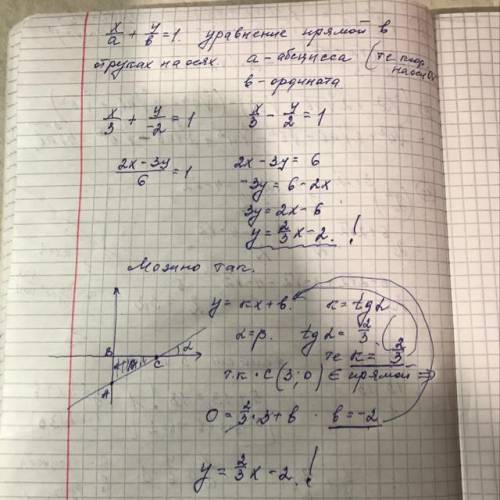 x/a + y/b = 1. уравнение прямой в
отрезках на осях. a - абсцисса (те
на оси
b - ордината
x/3 + y/-2 = 1
x/3 - y/2 = 1
(2x-3y)/6 = 1
2x-3y = 6
-3y = 6-2x
3y = 2x-6
y = 2/3 x - 2. !
Можно так.
y = kx + b. k = tg α
α = β. tg α = 2/3.
те k = 2/3
B
A
C
α
т.к. C (3; 0) ∈ прямой ⇒
0 = 2/3 · 3 + b · b = -2
y = 2/3 x - 2. !